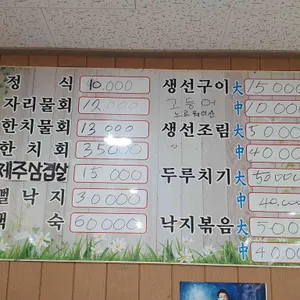 정 식 10.000
자리물회 12.000
한치물회 13.000
한 치 회 35000
제주삼겹살 15 000
낙 지 30000
숙 60000
생선구이 大 15000
고등어 中 10000
노르웨이산
생선조림 大 50000
中 40000
두루치기 大 50000
中 40,000
낙지볶음 大
中